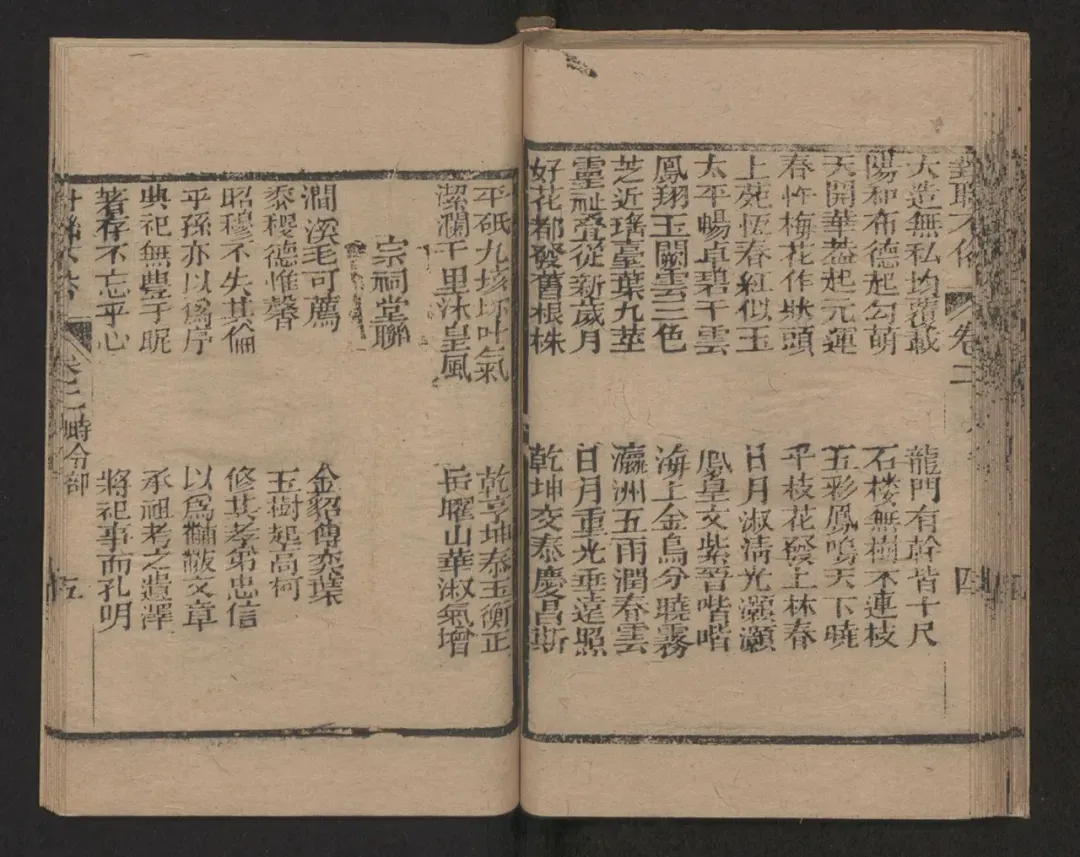 對聯不俗 卷二 四
大造無私均覆載 龍門有幹皆十尺
陽和布德起勾萌 石楼無樹不連枝
天開華蓋起元運 五彩鳳鳴天下曉
春忤梅花作狀頭 平枝花發上林春
上苑恆春紅似玉 日月淑淸光灝灝
太平暢卓碧干雲 鳳皇文紫晉喈喈
鳳翔玉闕雲三色 海上金烏分曉霧
芝近瑤臺葉九莖 瀛洲五雨潤春雲
靈祉疊從新歲月 日月重光垂遠照
好花都發舊根株 乾坤交泰慶昌期
平砥九垓坏叶氣 乾亨坤泰玉衡正
潔瀾千里沐皇風 岳曜山華淑氣增
宗祠堂聯
澗溪毛可薦 金貂傳奕葉
黍稷德惟馨 玉樹起高柯
昭穆不失其倫 修其孝弟忠信
乎孫亦以爲序 以爲黼黻文章
典祀無豊于昵 承祖考之遺澤
著存不忘乎心 將祀事而孔明
卷二 時令部 五